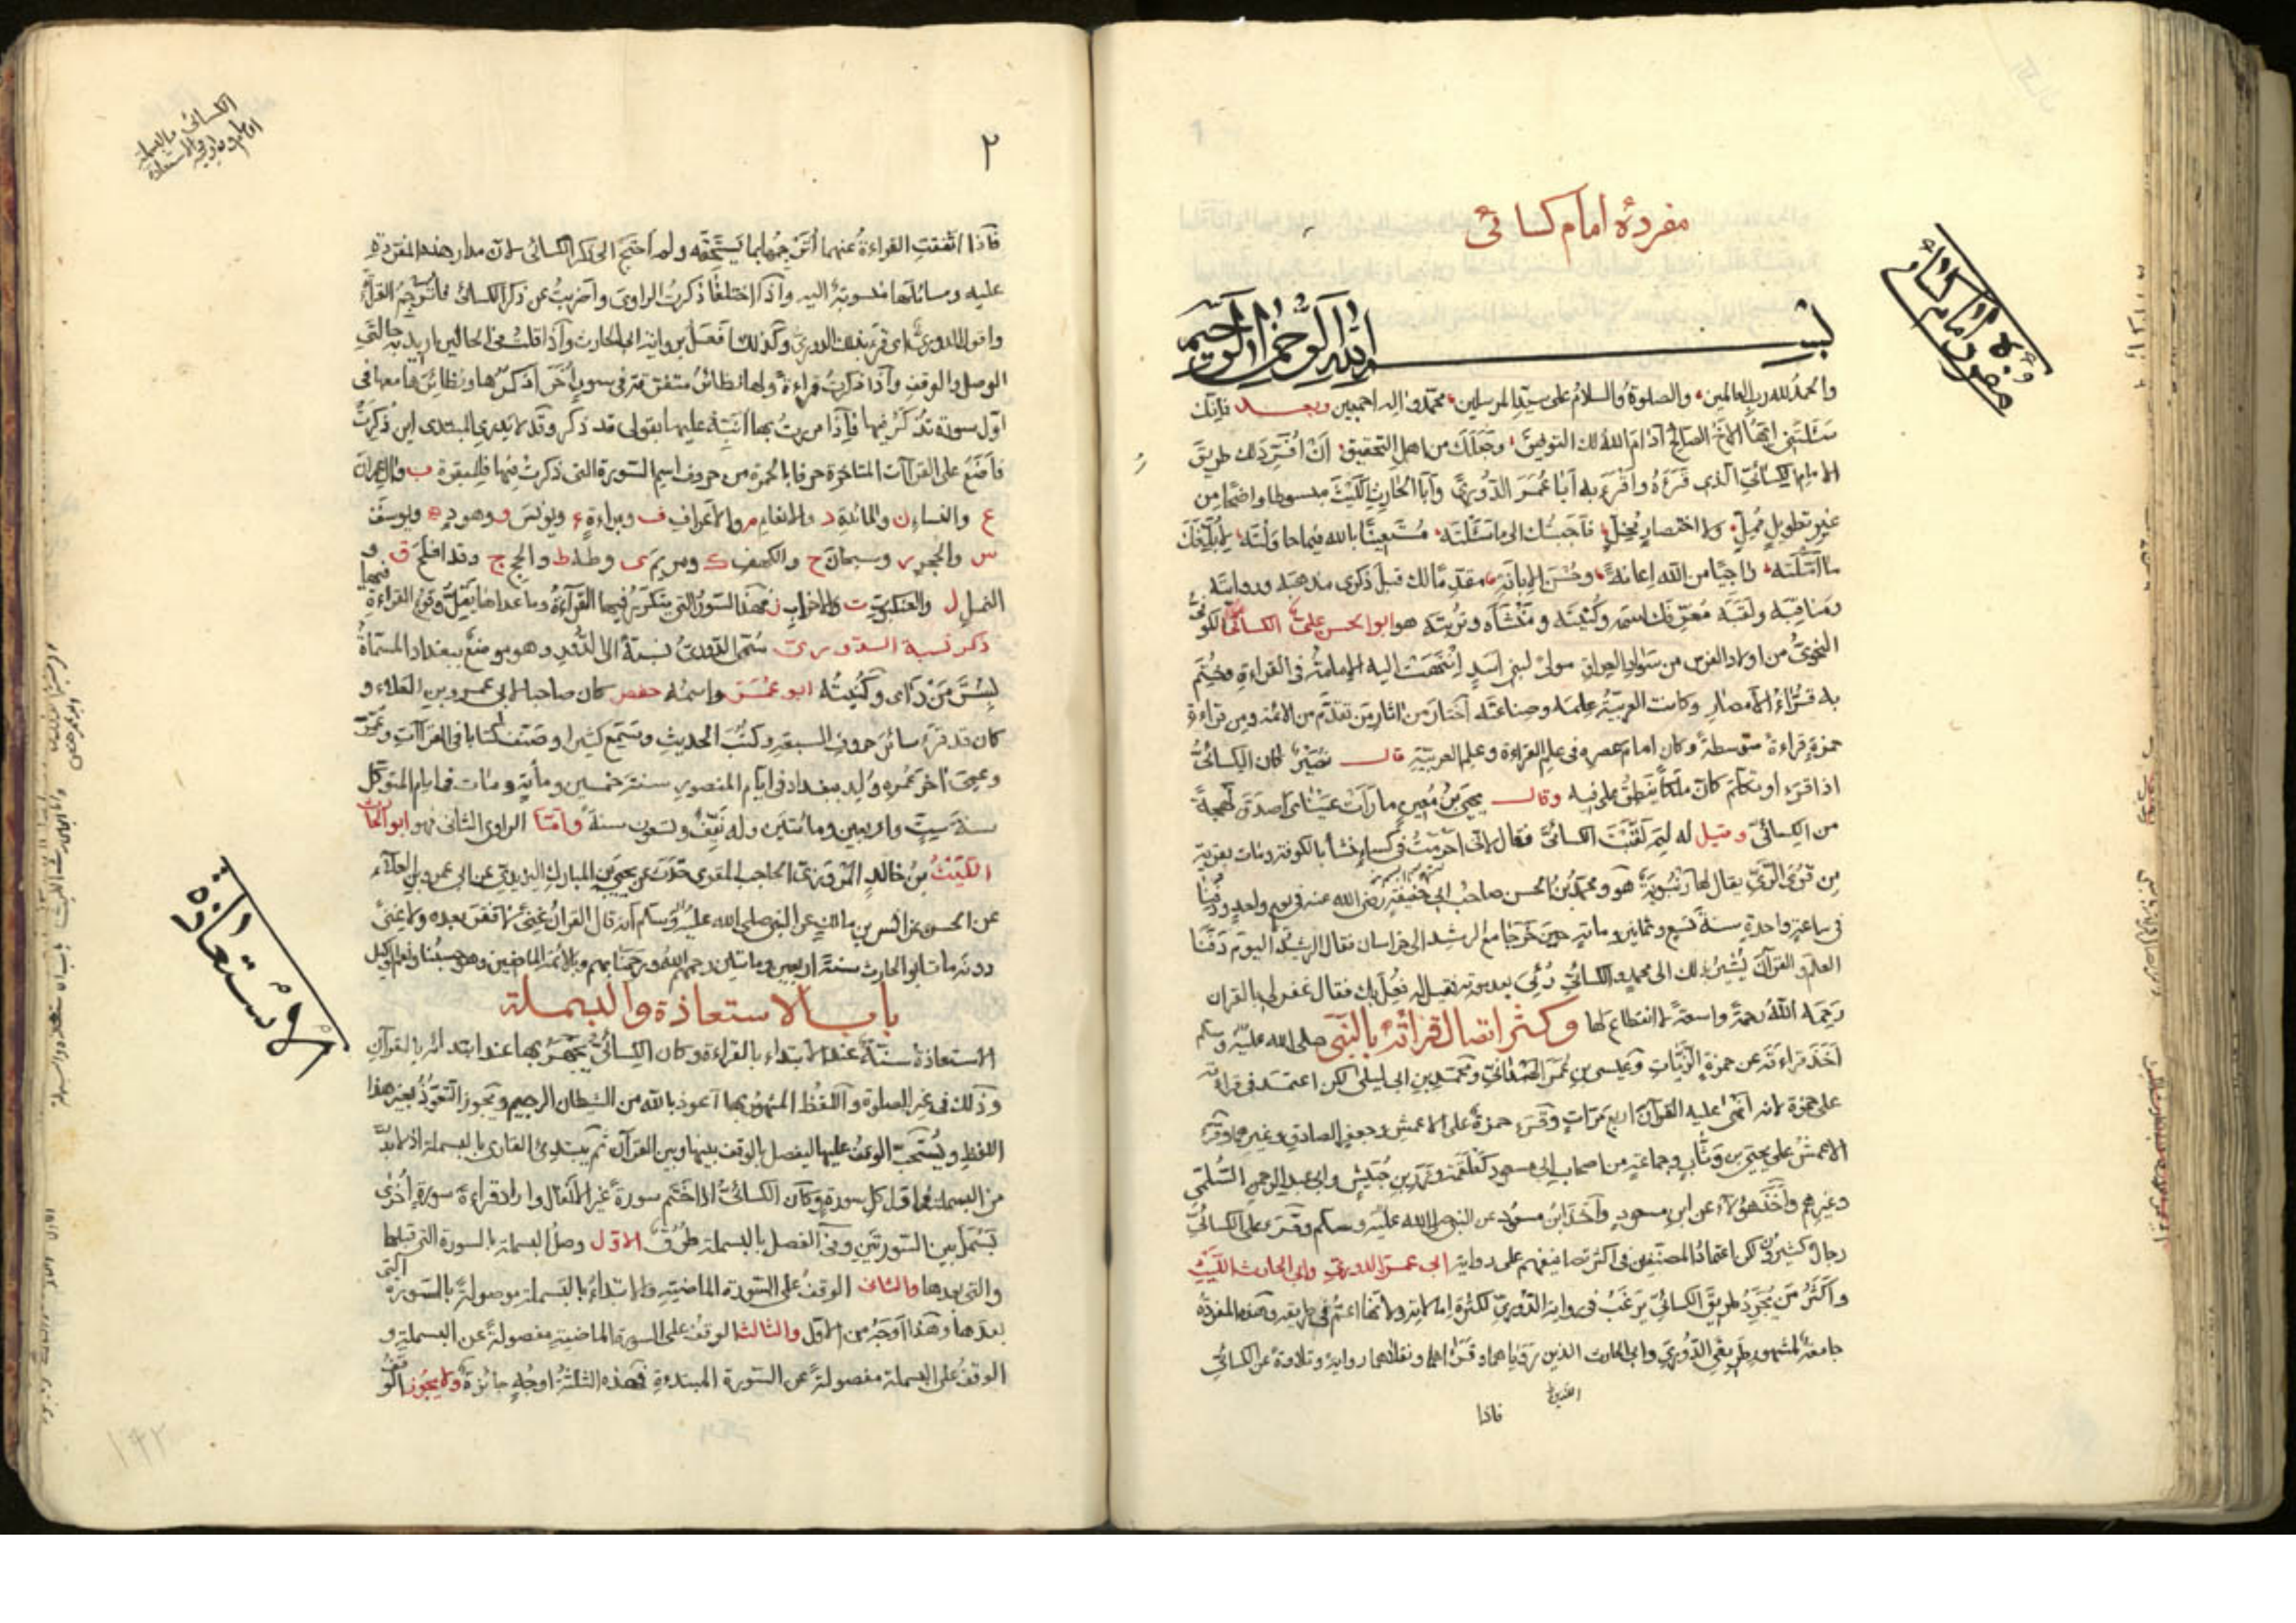 مفردهٔ امام كسائى
بسم الله الرحمن الرحيم
والحمد لله رب العالمين والصلوة والسلام على سيد المرسلين محمد واله اجمعين وبعد فانك
سئلتنى ايها الاخ الصالح ادام الله لك التوفيق وجعلك من اهل التحقيق ان افسر لك طريق
الامام الكسائى الذى قرءه واقرء به ابا عمر الدورى وابا الحارث الليث مبسوطا واضحا من
غير تطويل ممل ولا اختصار مخل فاجبتك الى ما سئلته مستعينا بالله فيما حاولته ليبلغك
ما املته راجيا من الله اعانه وحسن الابانه مقدما لك قبل ذكرى مذهبه وروايته
ومناقبه ولقبه معرفك اسمه وكنيته ومنشاه وتربته هو ابو الحسن على الكسائى الكوفى
النحوى من اولاد الفرس من سواد العراق مولى لبنى اسد انتهت اليه الامامة فى القراءة وختم
به قراء الامصار وكانت العربية علمه وصناعته اختار من اثار من تقدم من الائمة ومن قراءة
حمزة قراءة متوسطة وكان امام عصره فى علم القراءة وعلم العربية قال نصير كان الكسائى
اذا قرء او تكلم كان ملكا ينطق على فيه وقال يحيى بن معين ما رأت عيناى اصدق لهجة
من الكسائى وقيل له لم لقبت الكسائى فقال لانى احرمت فى كساء نشأ بالكوفة ومات بقرية
من قرى الرى يقال لها رنبوية هو ومحمد بن الحسن صاحب ابى حنيفة رضى الله عنه فى يوم واحد ودفنا
فى ساعة واحدة سنة تسع وثمانين وماتة حين خرجا مع الرشيد الى خراسان فقال الرشيد اليوم دفنا
العلم والقرآن يشير بذلك الى محمد والكسائى رئى بعد موته فقيل له ما فعل بك فقال غفر لى بالقران
رحمه الله رحمة واسعة لا انقطاع لها وكثر اتصال قرائته بالنبى صلى الله عليه وسلم
اخذ قراءته عن حمزة الزيات وعيسى بن عمر الهمدانى ومحمد بن ابى ليلى لكن اعتمد فى قراءته
على حمزة لانه انهى عليه القرآن اربع مرات وقرء حمزة على الاعمش وجعفر الصادق وغيرهما وقرأ
الاعمش على يحيى بن وثاب وجماعة من اصحاب ابن مسعود كعلقمة وزر بن حبيش وابى عبد الرحمن السلمى
وغيرهم واخذ هؤلاء عن ابن مسعود واخذ ابن مسعود عن النبى صلى الله عليه وسلم وقرء على الكسائى
رجال كثيرون لكن اعتماد المصنفين فى اكثر تصانيفهم على رواية ابى عمر الدورى وابى الحارث الليث
واكثر من يجرد طريق الكسائى يرغب فى رواية الدورى لكثرة امالاته ولانها اعم فى طريقه وهذه المفردة
جامعة لمشهور طريقى الدورى وابى الحارث الذين رويا هما وقرا اهما ونقلاهما رواية وتلاوة عن الكسائى
فاذا
مفرده امام كسائى
٢
فاذا اتفقت القراءة عنهما اترجمها بما يستحقه ولم احتج الى ذكر الكسائى لان مدار هذه المفردة
عليه ومسائلها منسوبة اليه واذا اختلفا ذكرت الراوى واضربت عن ذكر الكسائى فاترجم القراءة
واقول الدورى اى قرء بذلك الدورى وكذلك افعل برواية ابى الحارث واذا قلت فى الحالين اريد به حالتى
الوصل والوقف واذا ذكرت قراءة ولها نظائر متفرقة فى سور أخر اذكرها ونظائرها معها فى
اول سورة تذكر فيها فاذا مررت بها انبه عليها بقولى قد ذكر وقد لا يدرى المبتدى اين ذكرت
فاضع على القراآت المتاخرة حرفا بالحمرة من حروف اسم السورة التى ذكرت فيها فللبقرة ب وال عمران
ع والنساء ن والمائدة د والانعام م والاعراف ف وبراءة ء ويونس و وهود ه ويوسف
س والحجر ر وسبحان ح والكهف ك ومريم ى وطه ط والحج ج وقد افلح ق و
النمل ل والعنكبوت ت والاحزاب ز فهذه السور التى يتكرر فيها القراءة وما عداها يقل وقوع القراءة فيها
ذكر نسبة الدورى سمى الدورى نسبة الى الدور وهو موضع ببغداد المسماة
بسر من رأى وكنيته ابو عمر واسمه حفص كان صاحبا لابى عمرو بن العلاء و
كان قد قرء سائر حروف السبعة وكتب الحديث وسمع كثيرا وصنف كتابا فى القراآت وعمر
وعمى اخر عمره ولد ببغداد فى ايام المنصور سنة خمسين ومأية ومات فى ايام المتوكل
سنة ست واربعين ومائتين وله نيف وتسعون سنة واما الراوى الثانى فهو ابو الحارث
الليث بن خالد المروزى الحاجب المقرى حدث عن يحيى بن المبارك اليزيدى عن ابى عمرو بن العلاء
عن الحسن عن انس بن مالك عن النبى صلى الله عليه وسلم انه قال القران غنى لا فقر بعده ولا غنى
دونه مات ابو الحارث سنة اربعين وماتين رحمهم الله ورحمنا بهم وبالائمة الماضين وهو حسبنا ونعم الوكيل
باب الاستعاذة والبسملة
الاستعاذة سنة عند الابتداء بالقراءة وكان الكسائى يجهر بها عند ابتدائه بالقرآن
وذلك فى غير الصلوة واللفظ المشهور بها اعوذ بالله من الشيطان الرجيم ويجوز التعوذ بغير هذا
اللفظ ويستحب الوقف عليها ليفصل بالوقف بينها وبين القرآن ثم يبتدئ القارى بالبسملة اذ لا بد
من البسملة فى اول كل سورة وكان الكسائى اذا ختم سورة غير الانفال واراد قراءة سورة اخرى
بسمل بين السورتين وفى الفصل بالبسملة طرق الاول وصل البسملة بالسورة التى قبلها
والتى بعدها والثانى الوقف على السورة الماضية والابتداء بالبسملة موصولة بالسورة التى
بعدها وهذا اوجه من الاول والثالث الوقف على السورة الماضية مفصولة عن البسملة و
الوقف على البسملة مفصولة عن السورة المبتدءة فهذه الثلثة اوجه جائزة ولا يجوز الوقف
الاستعاذة
١٤٢